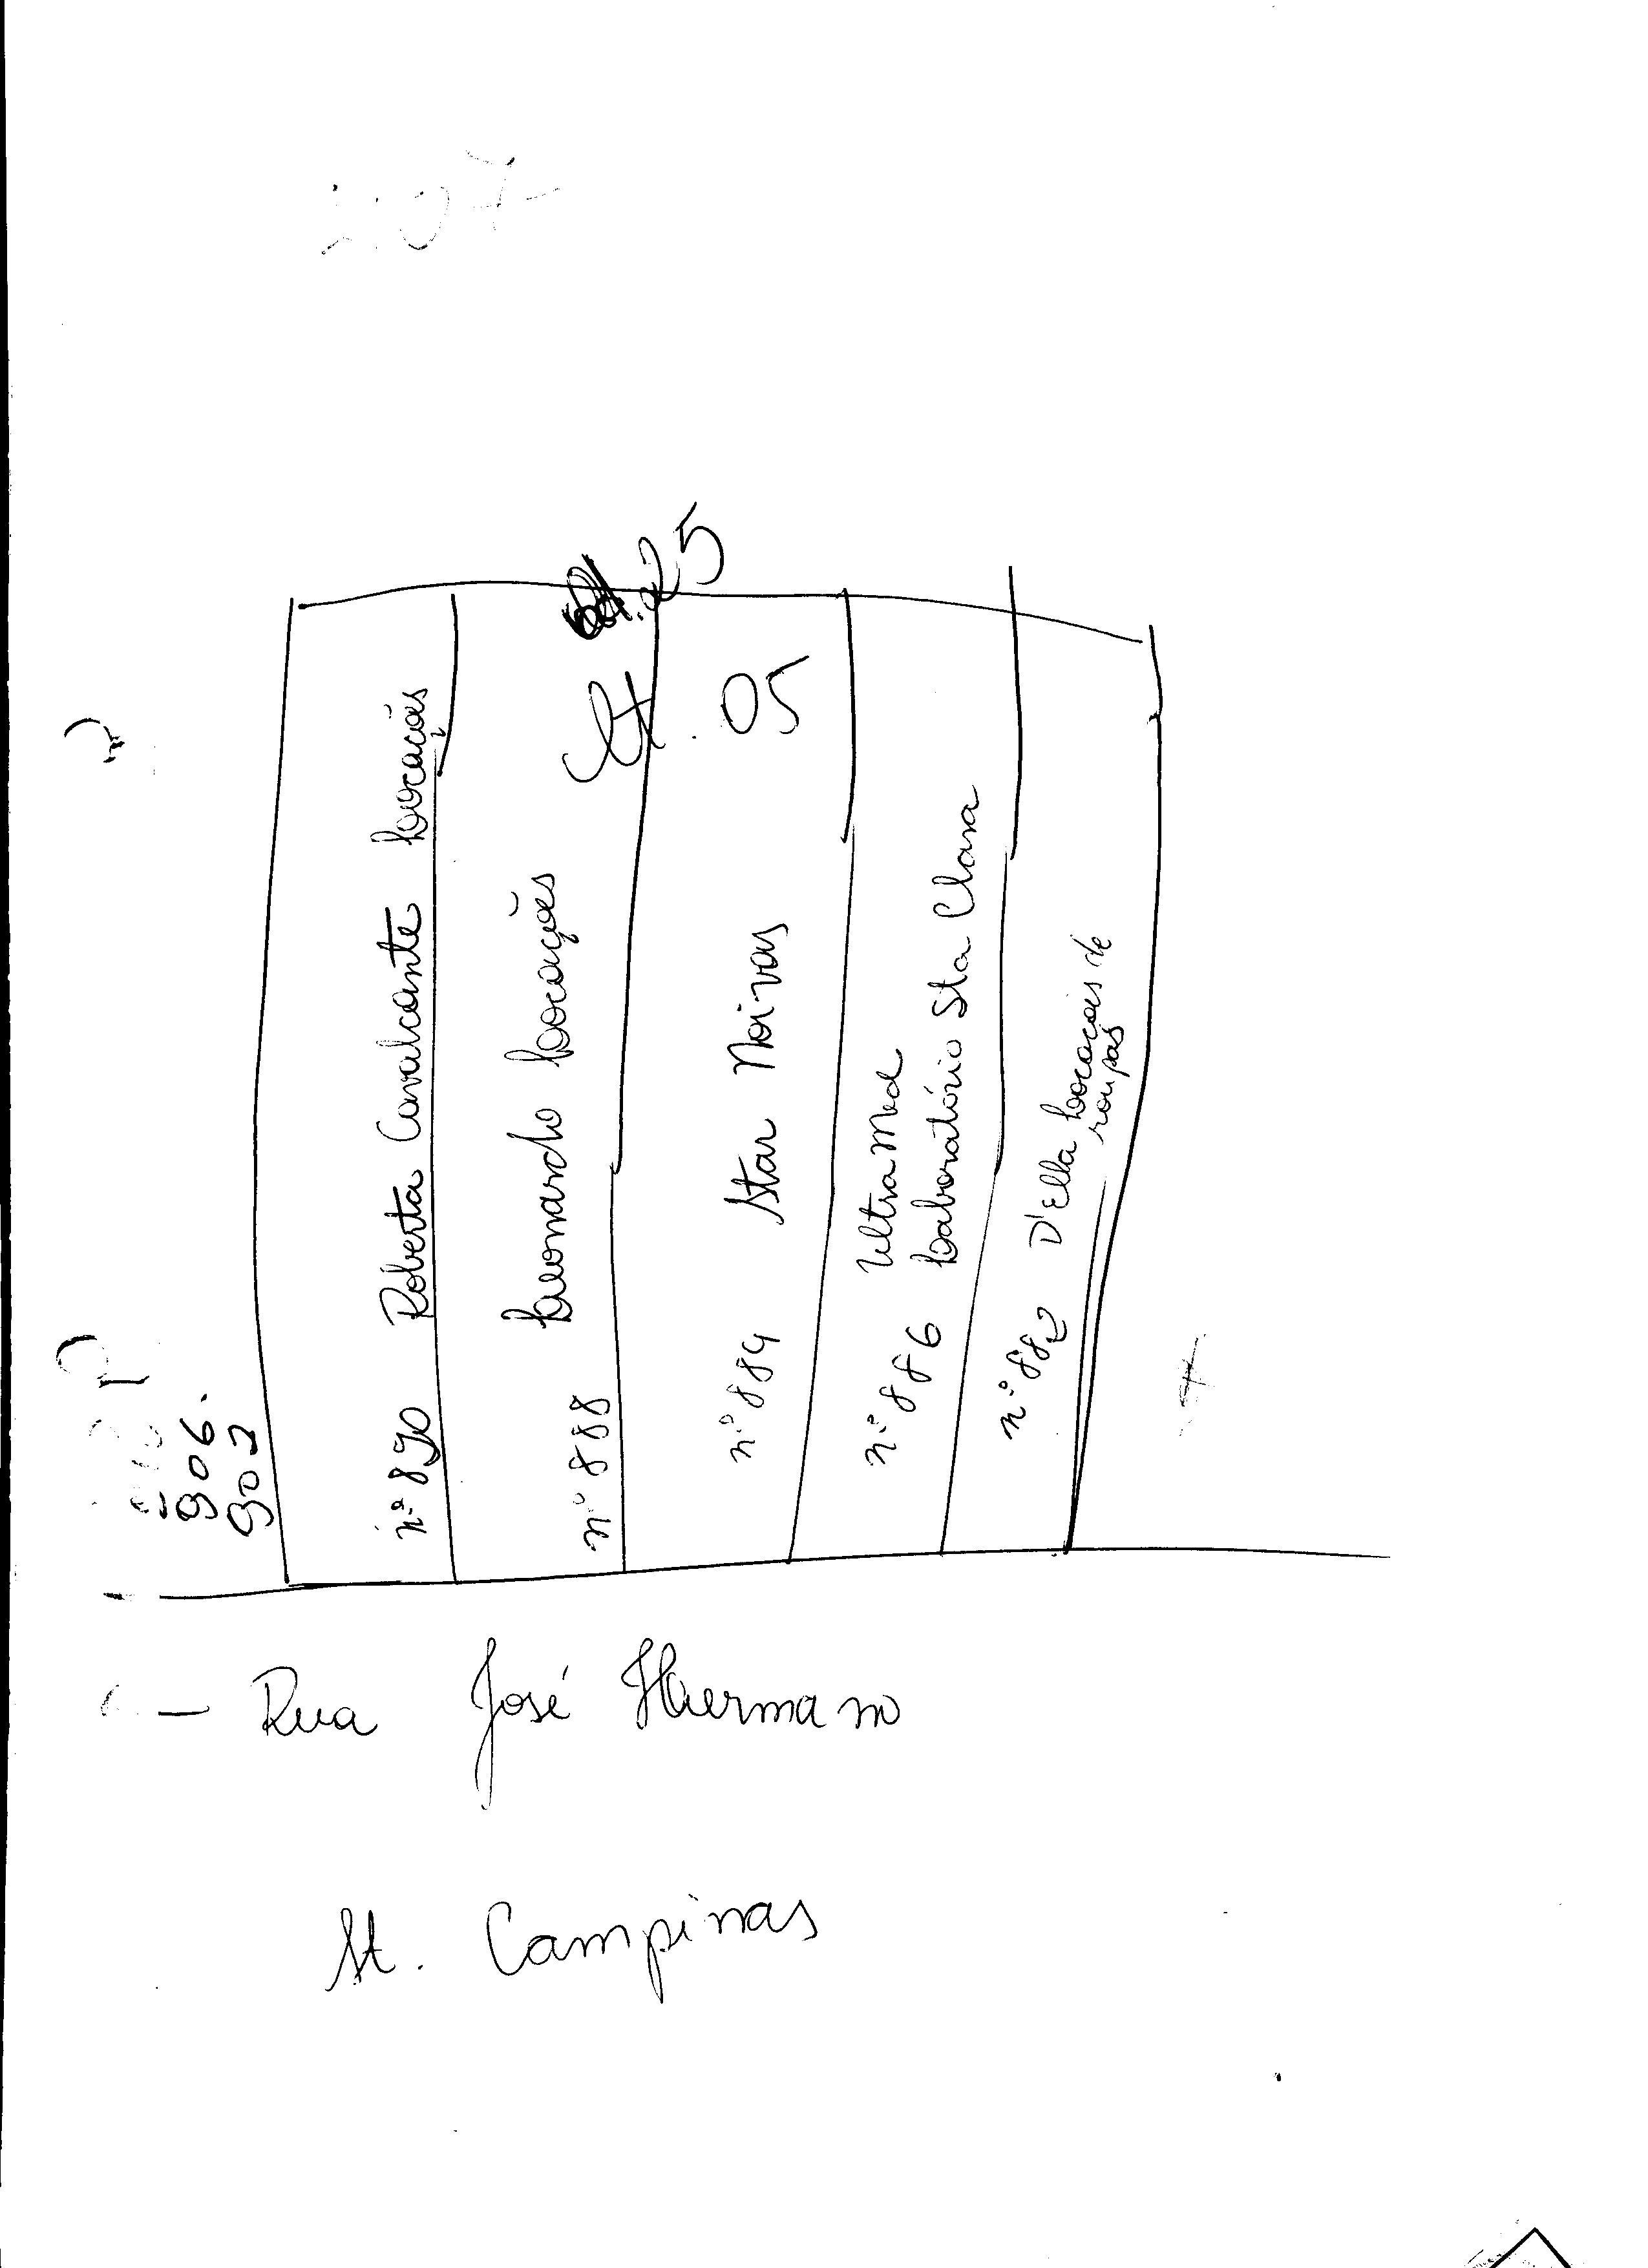 906.
902
nº 890 Roberta Cavalcante Locações
nº 888 Leonardo Locações
25
Lt. 05
nº 884 Star Noivas
nº 886 UltraMed
Laboratório Sta Clara
nº 882 D'Ella Locações de
roupas
Rua José Hermano
St. Campinas